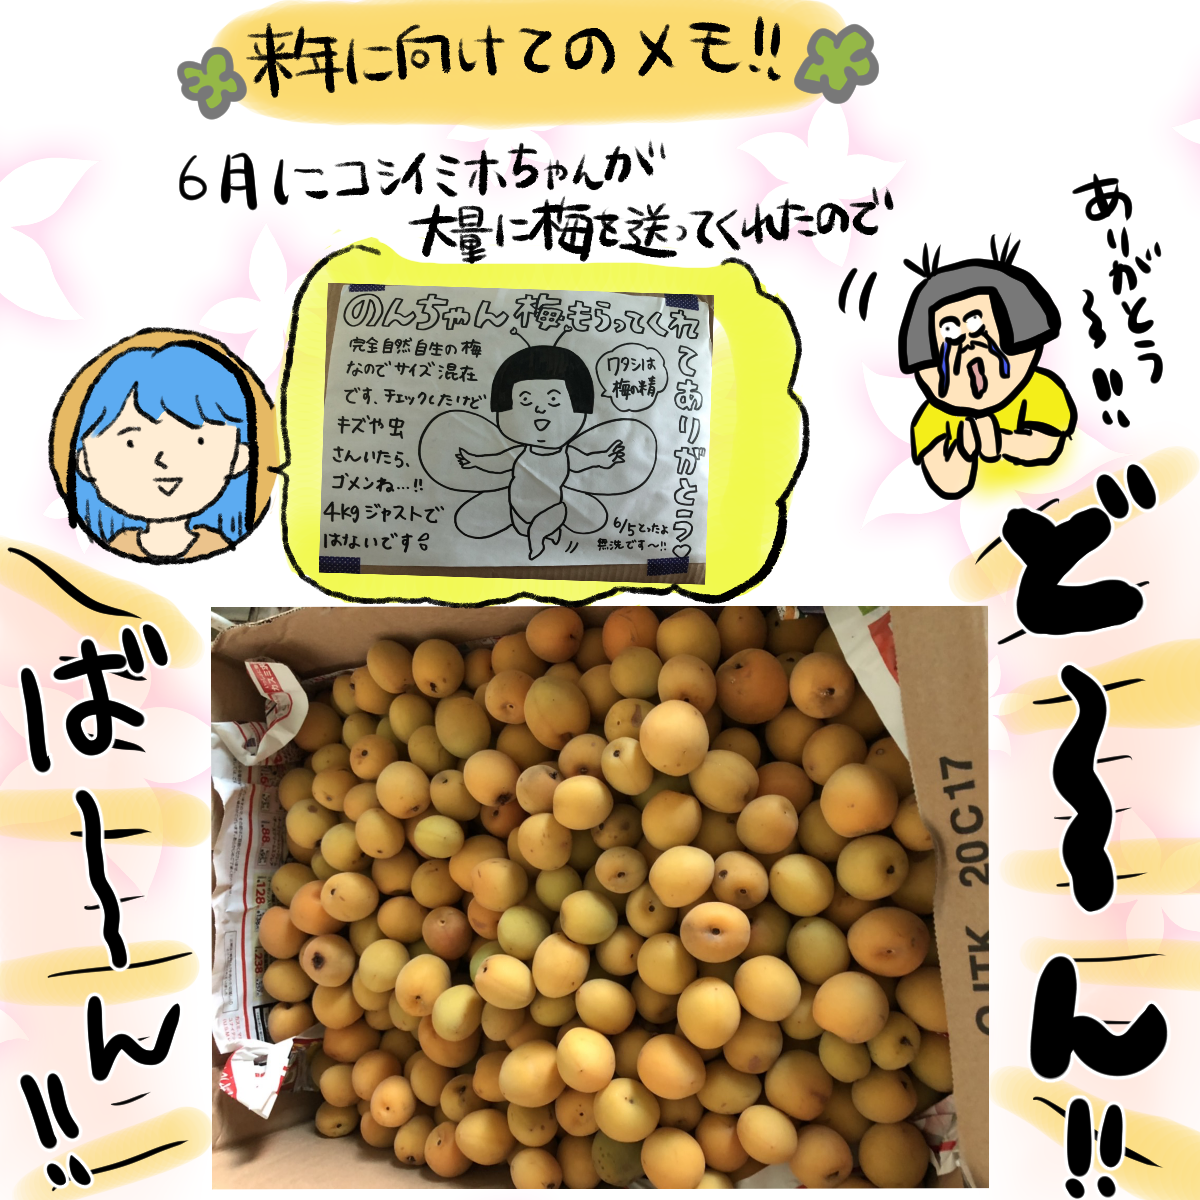 来年に向けてのメモ!!
6月にコシイミホちゃんが
大量に梅を送ってくれたので
ありがとう〜!!
のんちゃん梅もらってくれてありがとう♡
完全自然自生の梅
なのでサイズ混在
です、チェックしたけど
キズや虫
さんいたら、
ゴメンね…!!
4kgジャストで
はないです
ワタシは
梅の精
6/5とったよ
無洗です〜!!
ど〜ん!!
ばーん!!
20C17
OJTK
128
238